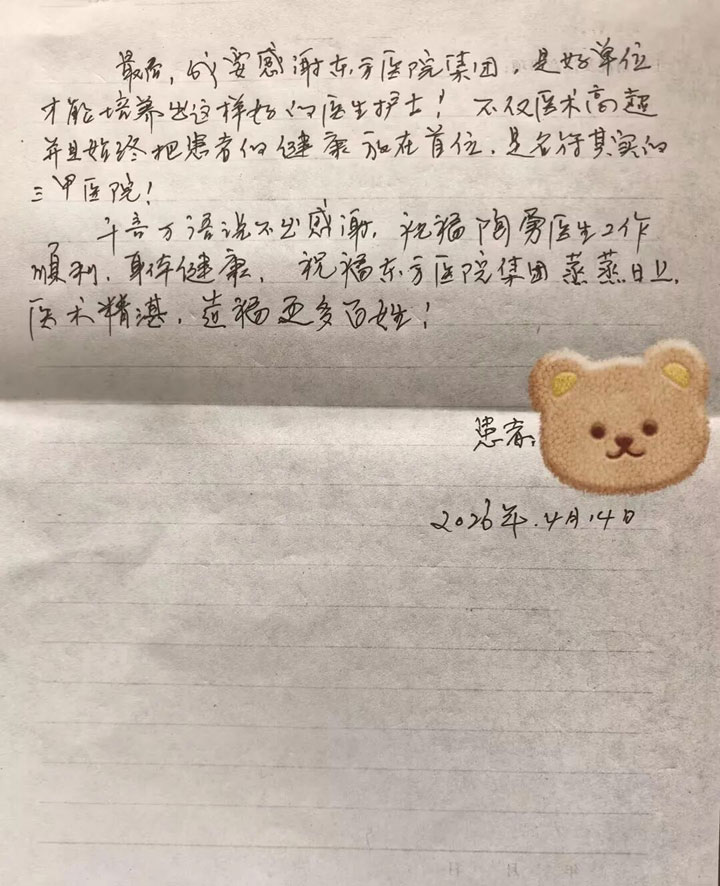 最后，我要感谢东方医院集团，是好单位
才能培养出这样好的医生护士！不仅医术高超
并且始终把患者的健康放在首位，是名符其实的
三甲医院！
千言万语说不出感谢，祝福陶勇医生工作
顺利，身体健康，祝福东方医院集团蒸蒸日上，
医术精湛，造福更多百姓！
患者：
2026年.4月.14日
年 月 日